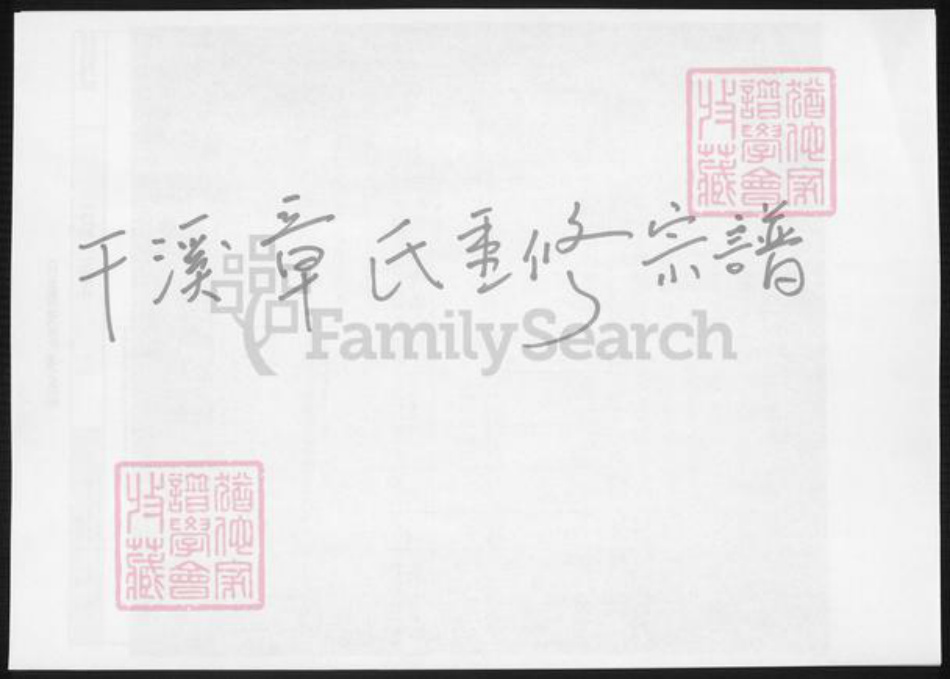 干溪章氏重修宗譜
FamilySearch
猶他家
譜學會
收藏
猶他家
譜學會
收藏